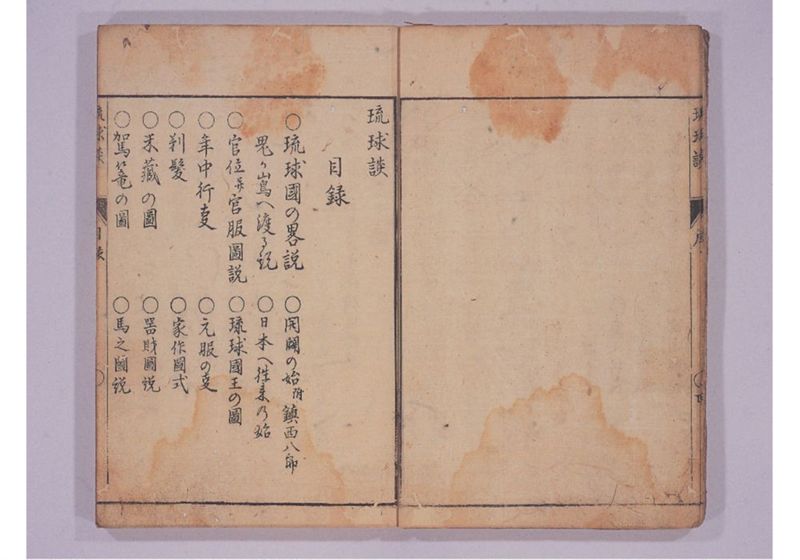 琉球談
目録
○琉球國の畧説
○開闢の始附鎮西八郎
鬼ヶ嶌へ渡る説
○日本へ往来の始
○官位并官服圖説
○琉球國王の圖
○年中行事
○元服の事
○剃髪
○家作圖式
○米蔵の圖
○器財圖説
○駕篭の圖
○馬之圖説